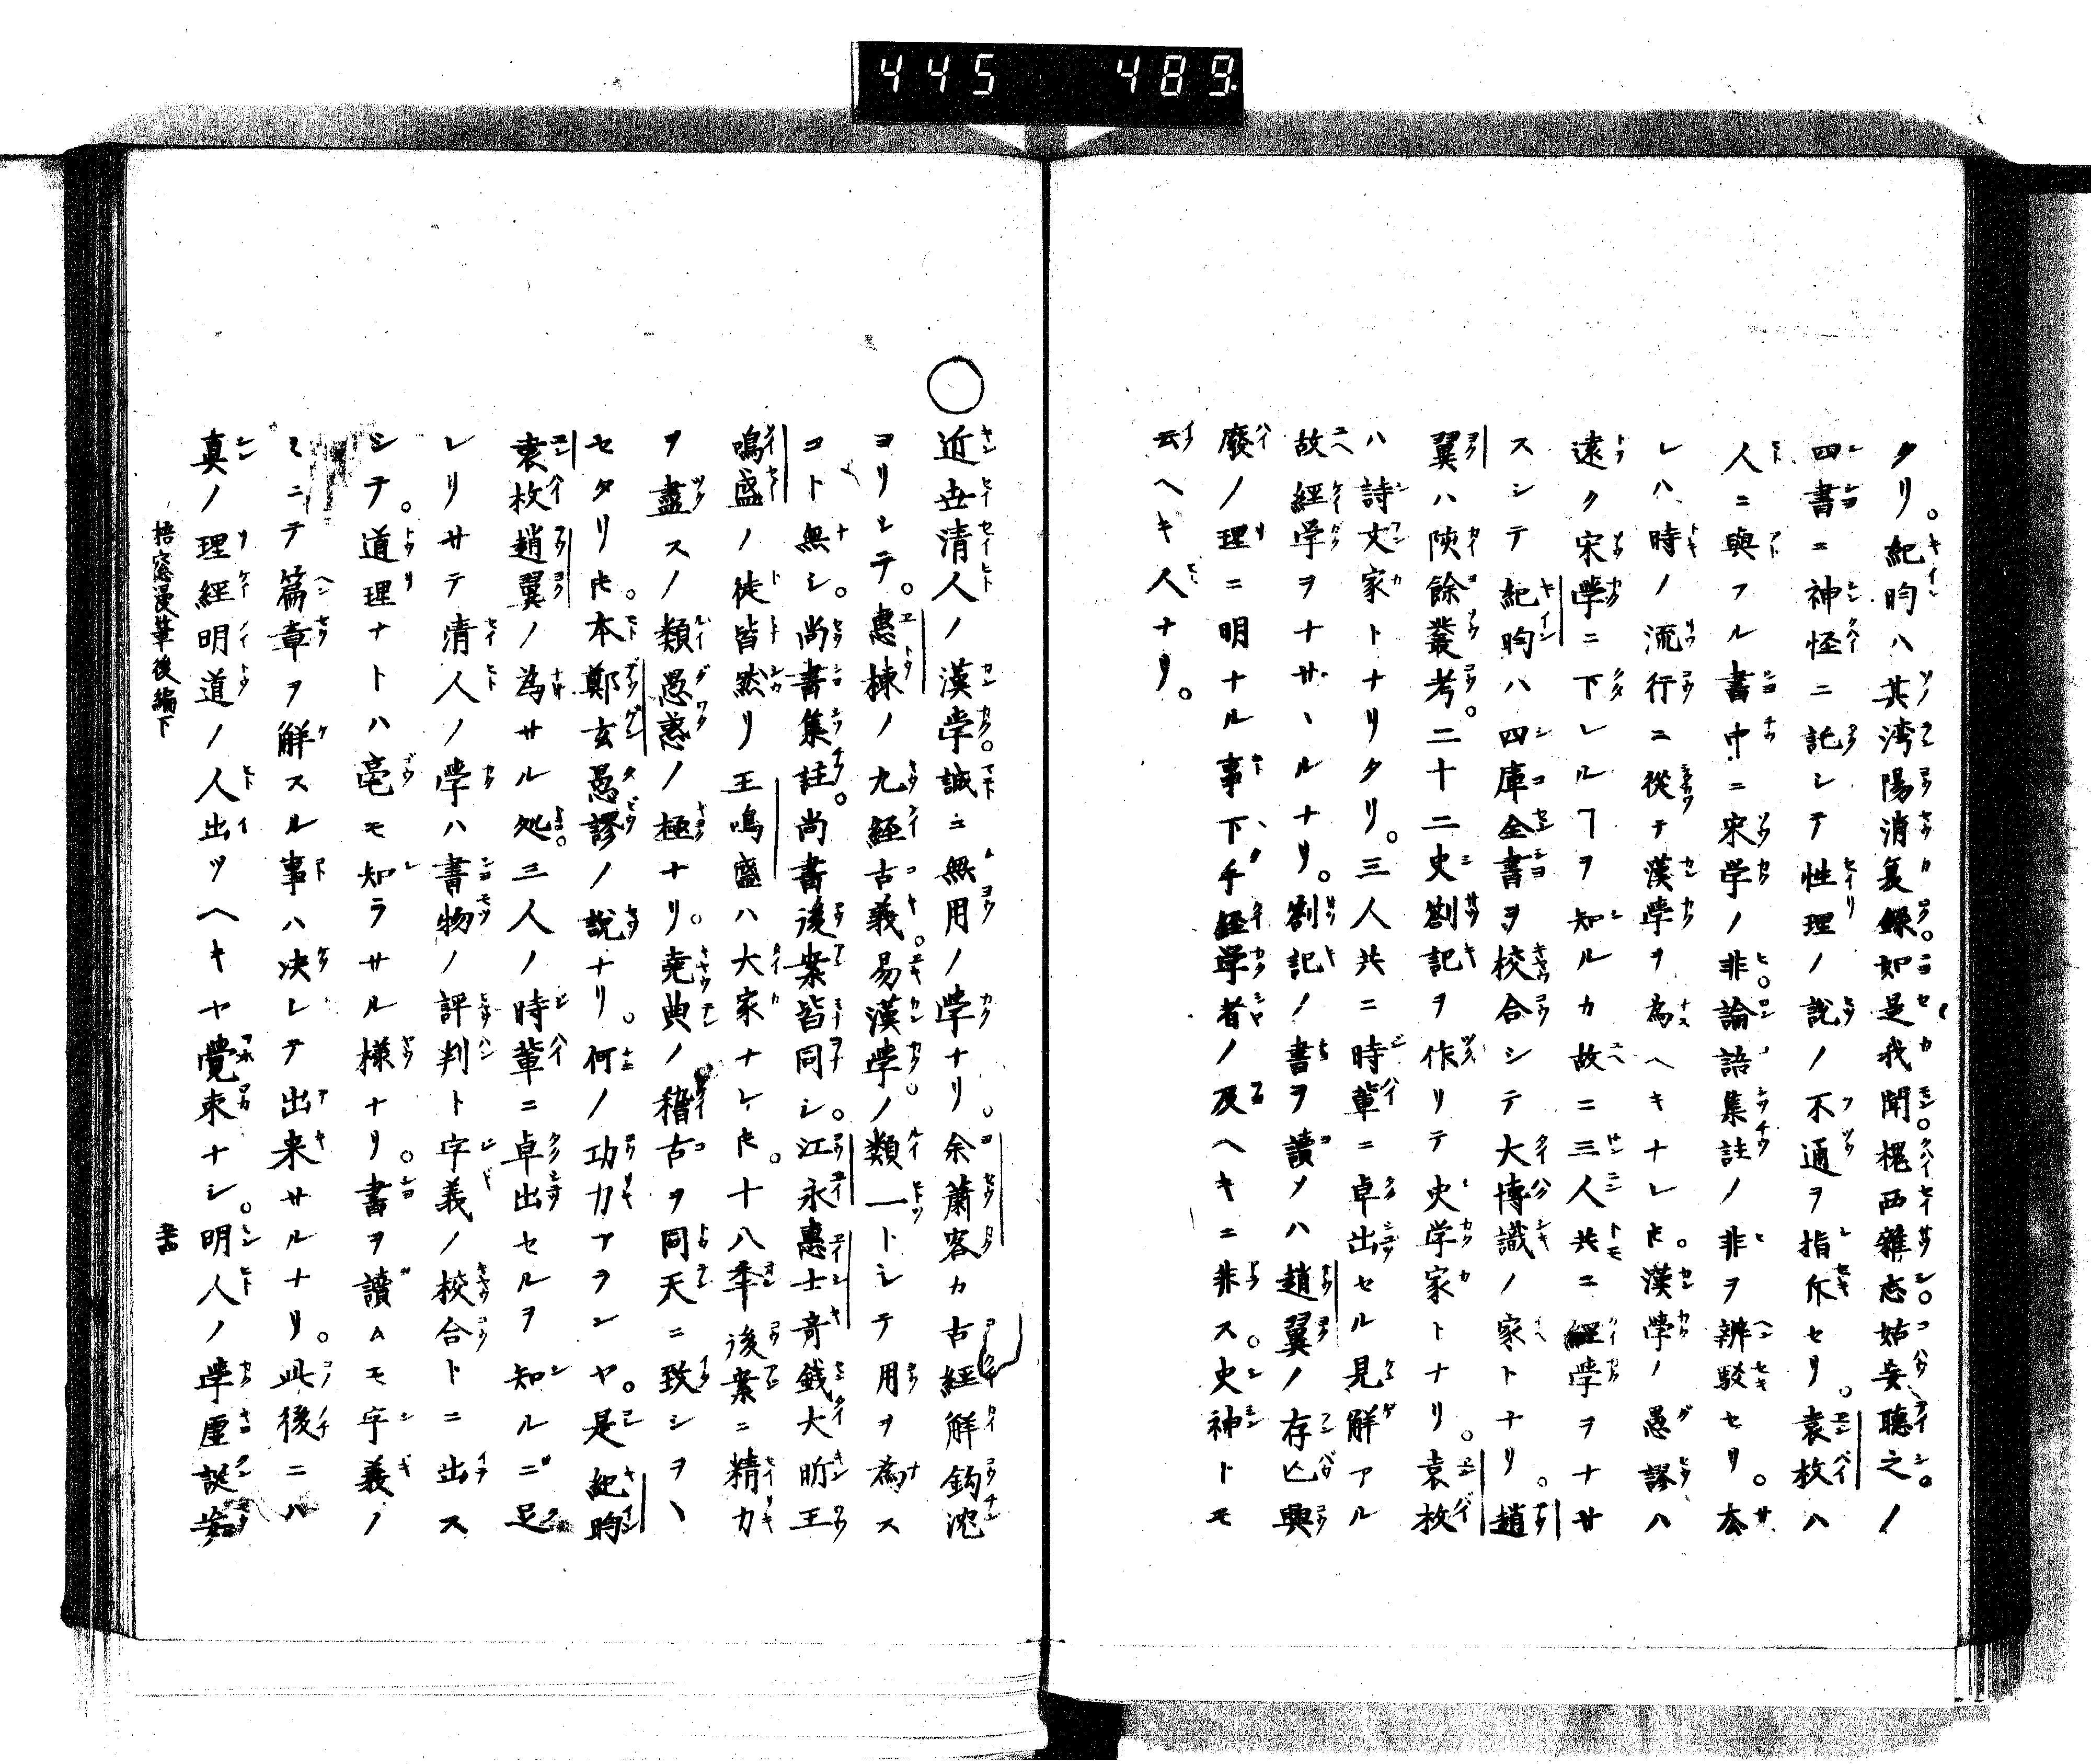 445 489
タリ。紀昀ハ其湾陽消夏録。如是我聞。槐西雜志。姑妄聽之。ノ
四書ニ神怪ニ託シテ性理ノ説ノ不通ヲ指斥セリ。袁枚ハ
人ニ與フル書中ニ宋学ノ非。論語集註ノ非ヲ辨駁セリ。去
レハ時ノ流行ニ從テ漢學ヲ為ヘキナレ𪜈。漢學ノ愚謬ハ
遠ク宋學ニ下レルヿヲ知ルカ故ニ三人共ニ經學ヲナサ
スシテ紀昀ハ四庫全書ヲ校合シテ大博識ノ家トナリ。趙
翼ハ陔餘叢考。二十二史劄記ヲ作リテ史学家トナリ。袁枚
ハ詩文家トナリタリ。三人共ニ時輩ニ卓出セル見解アル
故經学ヲナサヽルナリ。劄記ノ書ヲ讀ノハ趙翼ノ存亡興
廢ノ理ニ明ナル事下手経学者ノ及ヘキニ非ス。史神トモ
云ヘキ人ナリ。
○近世清人ノ漢学。誠ニ無用ノ學ナリ。余蕭客カ古經解鈎沈
ヨリシテ。惠棟ノ九経古義。易漢學。ノ類一トシテ用ヲ為ス
コト無シ。尚書集註。尚書後案皆同シ。江永惠士奇錢大昕王
鳴盛ノ徒皆然リ王鳴盛ハ大家ナレ𪜈。十八年後案ニ精力
ヲ盡スノ類愚惑ノ極ナリ。堯典ノ稽古ヲ同天ニ致シヲヽ
セタリ𪜈。本鄭玄愚謬ノ説ナリ。何ノ功力アランヤ。是紀昀
袁枚趙翼ノ為サル処。三人ノ時輩ニ卓出セルヲ知ルニ足
レリサテ清人ノ學ハ書物ノ評判ト字義ノ校合トニ出ス
シテ。道理ナトハ毫モ知ラサル様ナリ。書ヲ讀ムモ字義ノ
ミニテ篇章ヲ解スル事ハ决シテ出来サルナリ。此後ニハ
真ノ理經明道ノ人出ツヘキヤ覺束ナシ。明人ノ學虚誕妄
梧窓漫筆後編下